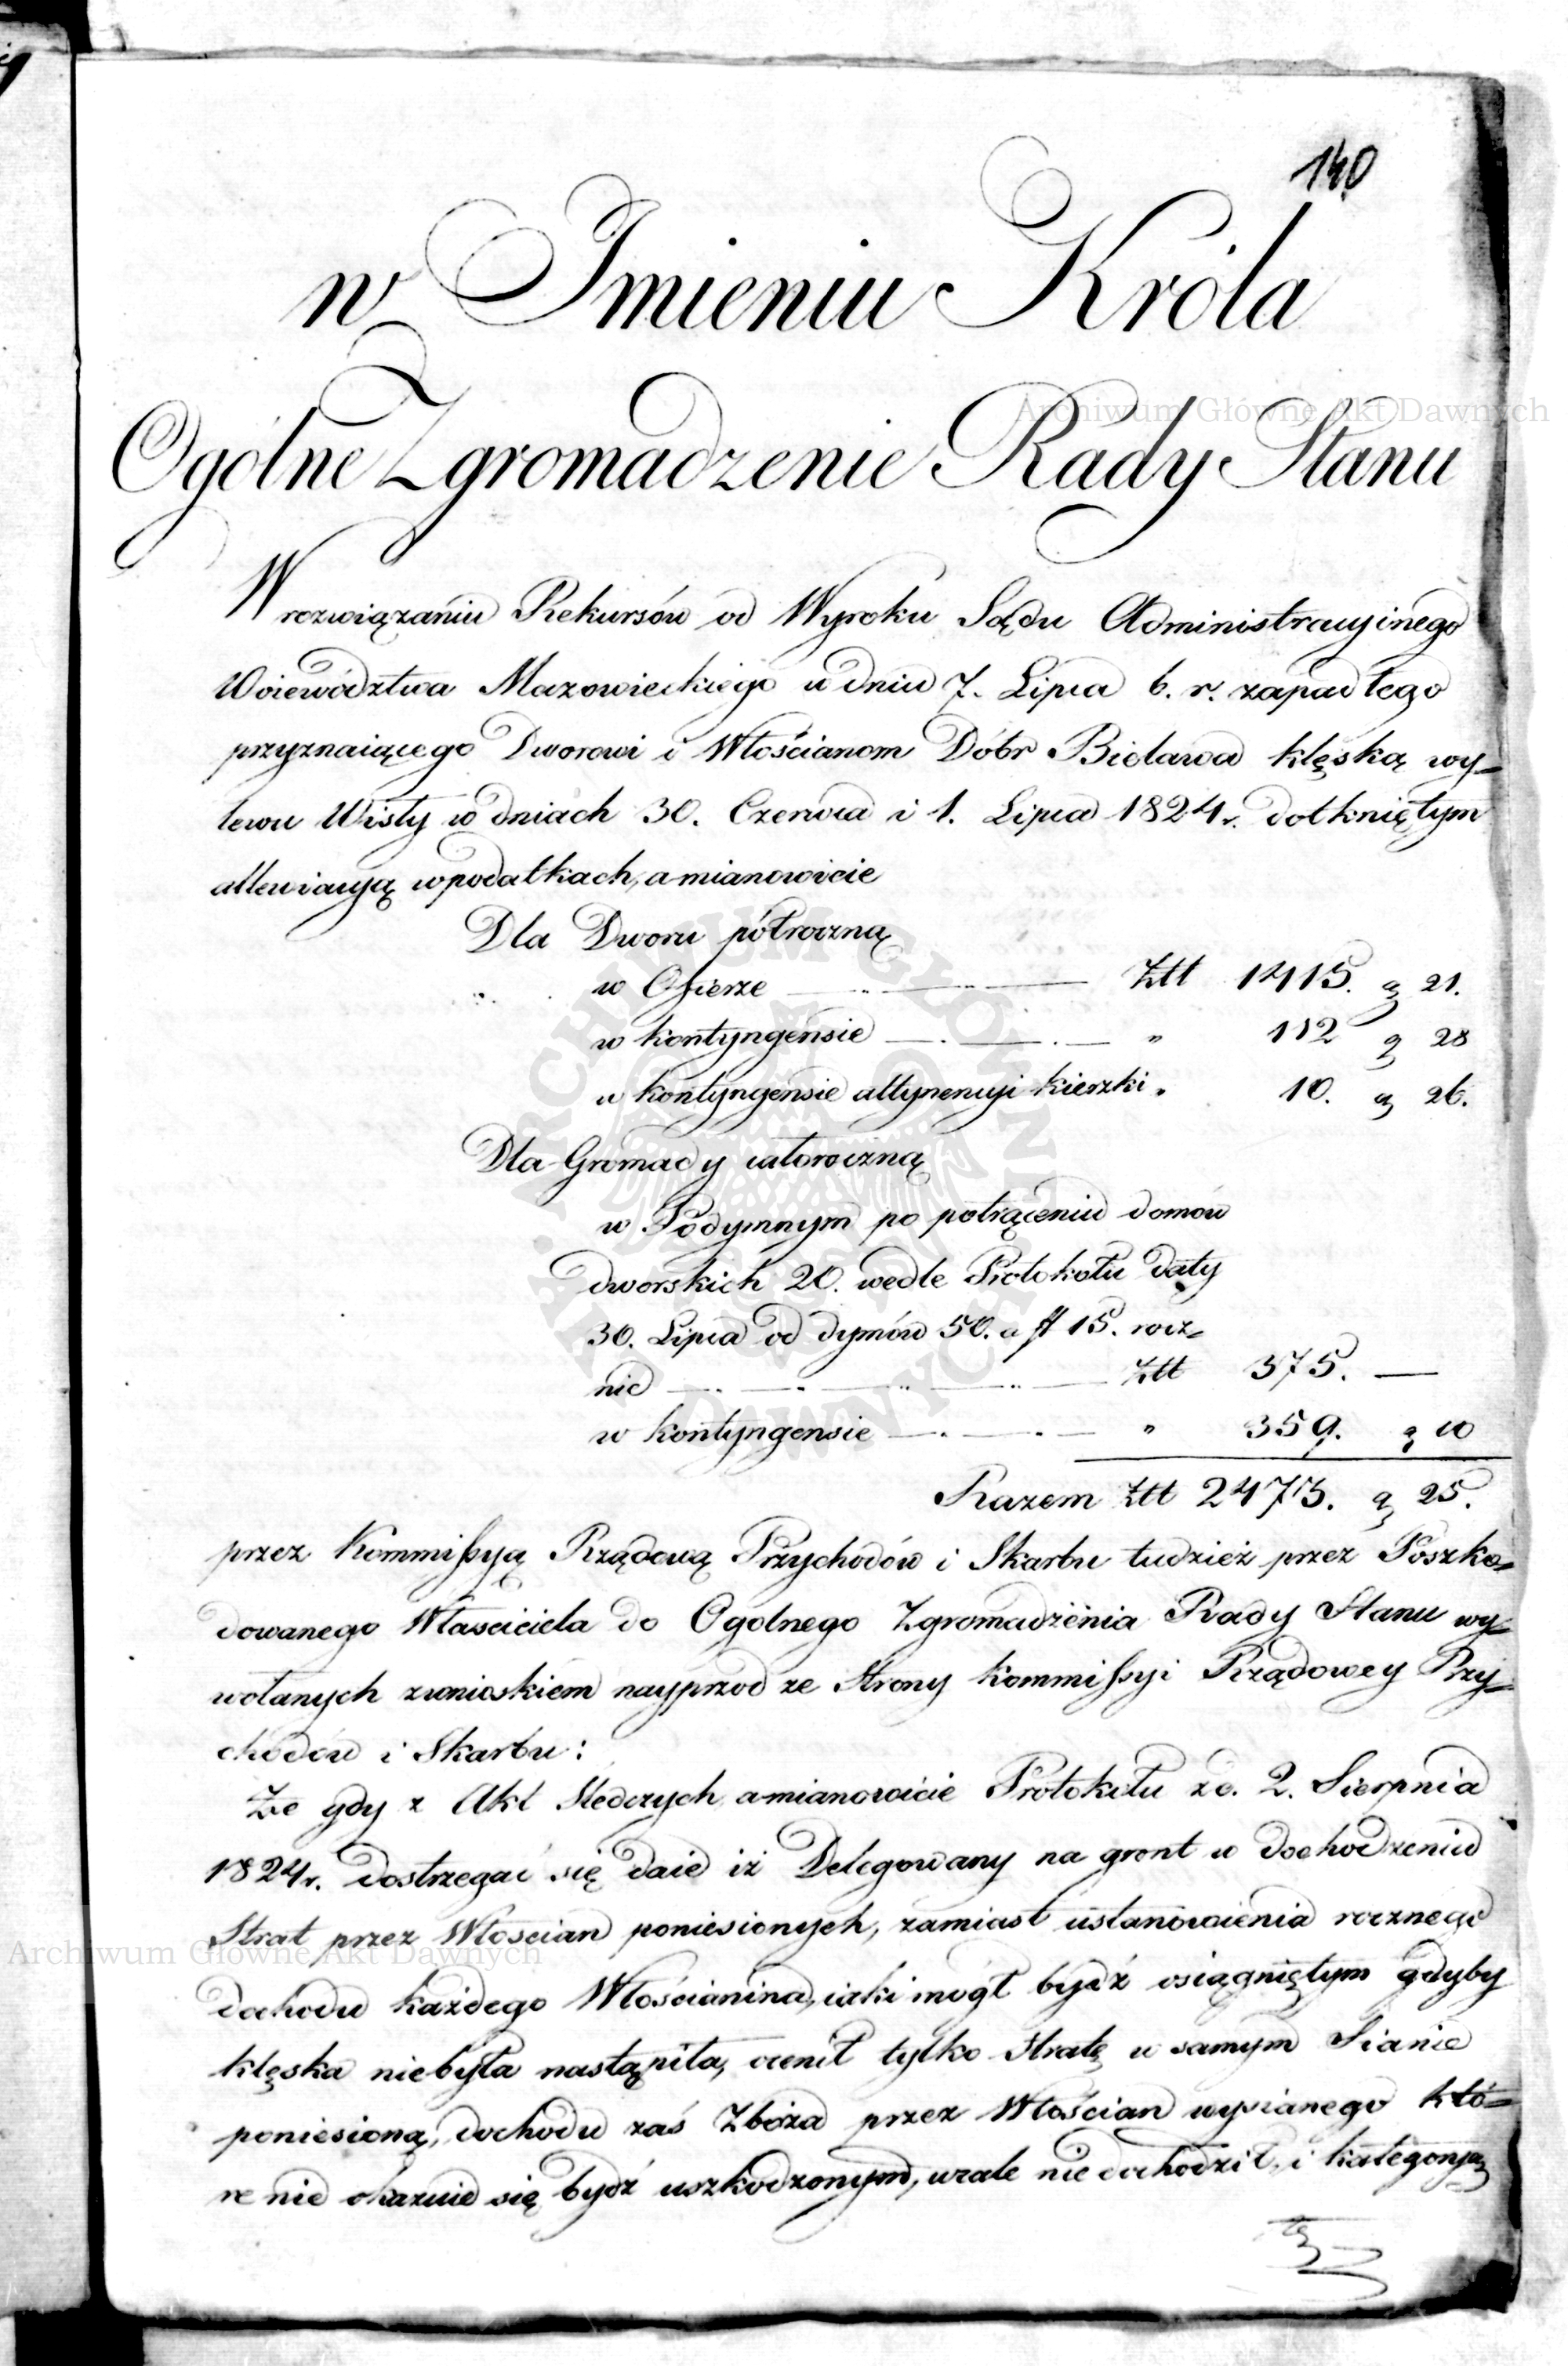 140
w Imieniu Króla
Ogólne Zgromadzenie Rady Stanu
W rozwiązaniu Rekursów od Wyroku Sądu Administracyinego
Woiewództwa Mazowieckiego w dniu 7. Lipca b. r. zapadłego
przyznaiącego Dworowi i Włościanom Dóbr Bielawa klęską wy=
lewu Wisły w dniach 30. Czerwca i 1. Lipca 1824r. dotkniętym
allewiacyą w podatkach, a mianowicie
Dla Dworu półroczną
w Ofierze Złł 1415. g 21.
w kontyngensie " 112 g 28
w kontyngensie attynencyi kierzki " 10. g 26.
Dla Gromady całoroczną
w Podymnym po potrąceniu domów
dworskich 20. wedle Protokołu daty
30. Lipca od dymów 50. a fl 15. rocz=
nie Złł 375. —
w kontyngensie " 359. g 10
Razem Złł 2473. g 25.
przez Kommissyą Rządową Przychodów i Skarbu tudzież przez Poszko=
dowanego Właściciela do Ogolnego Zgromadzenia Rady Stanu wy=
wołanych z wnioskiem nayprzod ze Strony Kommissyi Rządowey Przy=
chodów i Skarbu:
Że gdy z Akt Śledczych a mianowicie Protokołu z d. 2. Sierpnia
1824r. dostrzegać się daie iż Delegowany na gront w dochodzeniu
Strat przez Włościan poniesionych, zamiast ustanowienia rocznego
dochodu każdego Włościanina, iaki mógł bydź osiągniętym gdyby
klęska niebyła nastąpiła, ocenił tylko Stratę w samym Sianie
poniesioną, dochodu zaś Zboża przez Włościan wysianego któ=
re nie okazuie się bydź uszkodzonym, wcale nie dochodził, i kategoryą
Archiwum Główne Akt Dawnych
Archiwum Główne Akt Dawnych
ARCHIWUM GŁÓWNE AKT DAWNYCH